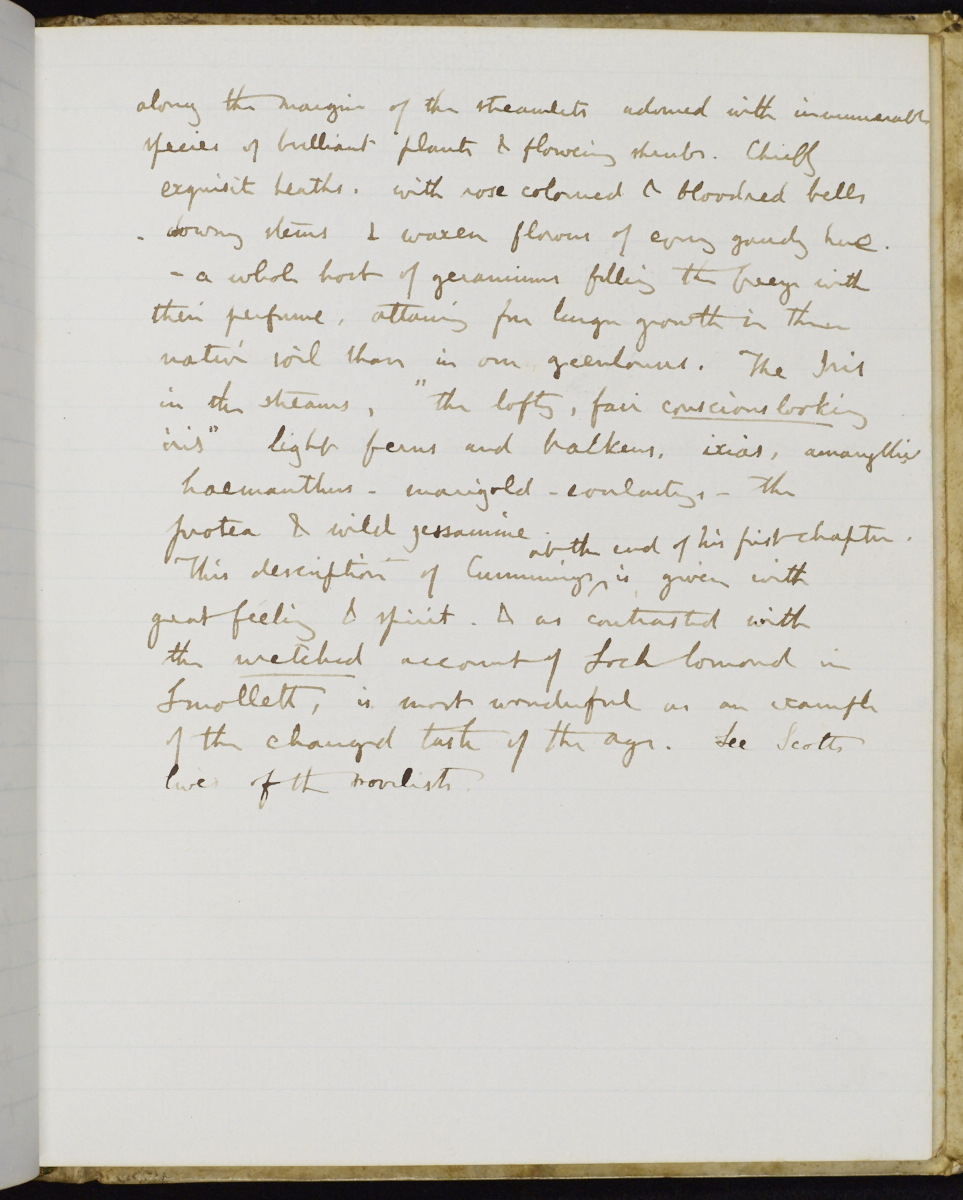 along the margin of the streamlets adorned with innumerable
species of brilliant plants & flowering shrubs. Chiefly
exquisit heaths. with rose coloured & bloodred bells
- downy stems & waxen flowers of every gaudy hue.
- a whole host of geraniums filling the breeze with
their perfume, attaining far larger growth in their
native soil than in our greenhouses. The Iris
in the streams, "the lofty, fair conscious looking
iris" light ferns and balkens, ixias, amaryllis
haemanthus - marigold - everlastings - the
protea & wild jessamine.
at the end of his first chapter.
This description of Cummings, is given with
great feeling & spirit. & as contrasted with
the wretched account of Loch lomond in
Smollett, is most wonderful as an example
of the changed taste of the age. See Scotts
lives of th novelists.